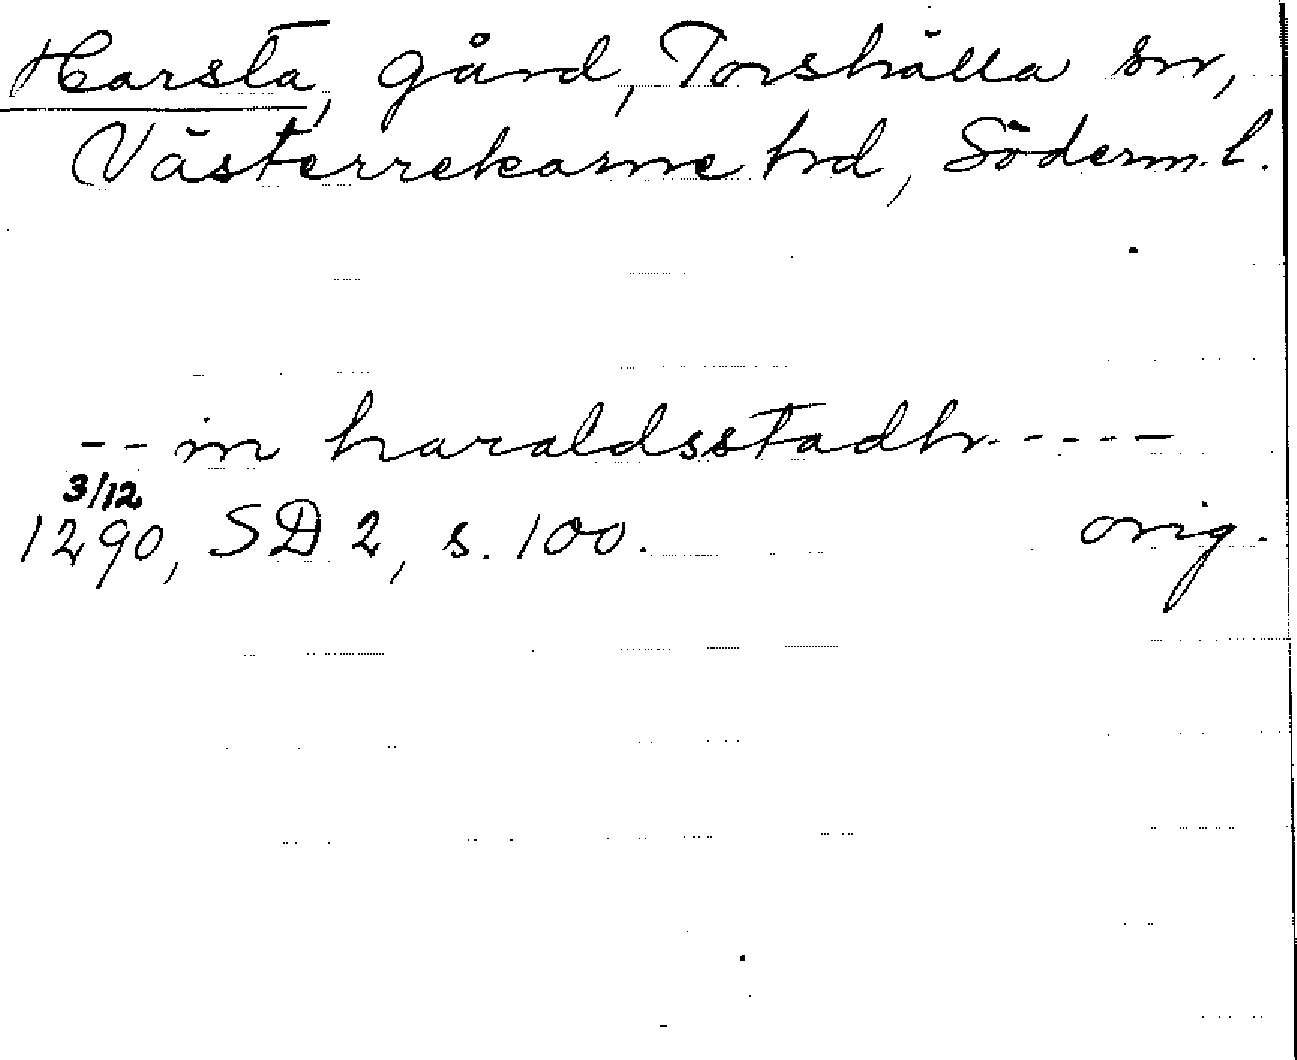 Harsta, gård, Torshälla sn,
Västerrekarne hd, Söderm.l.
-- in haraldsstadh -----
3/12
1290, SD 2, s. 100. orig.